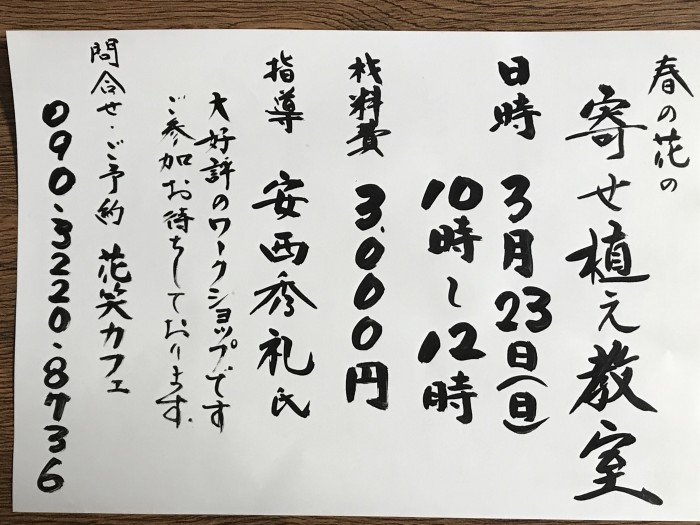 春の花の
寄せ植え教室
日時 3月23日(日)
10時~12時
材料費 3,000円
指導 安西秀礼氏
大好評のワークショップです
ご参加お待ちしております.
問合せ・ご予約 花笑カフェ
090・3220・8736